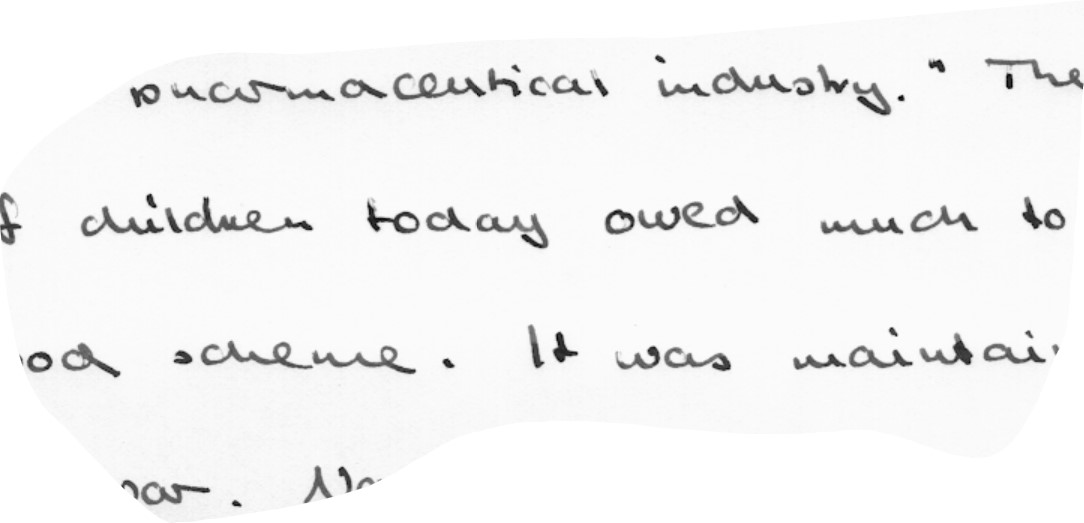 pharmaceutical industry." The
children today owed much to
scheme. It was